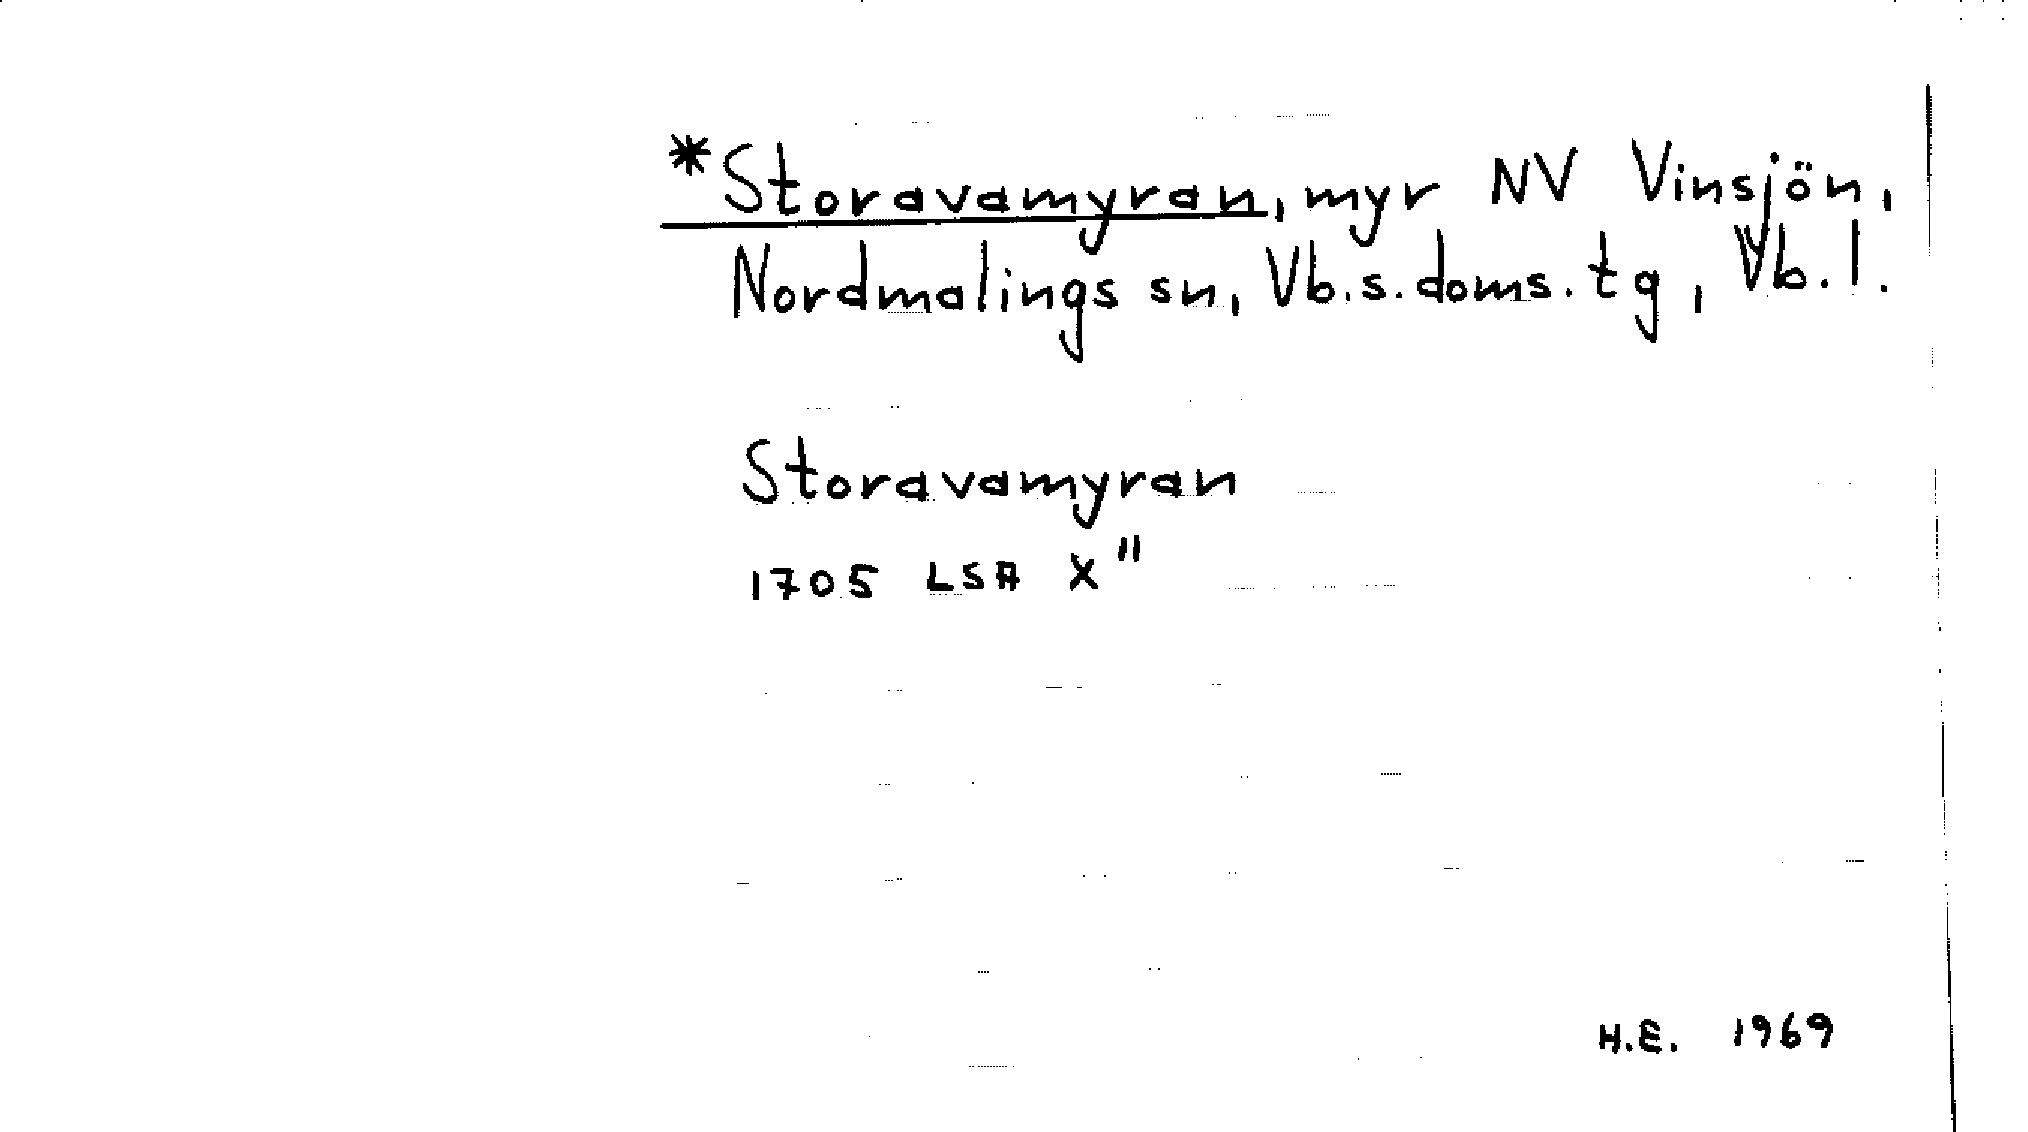 *Storavamyran, myr NV Vinsjön,
Nordmalings sn, Vb.s.doms.tg, Vb.l.
Storavamyran
1705 LSA X"
H.E. 1969